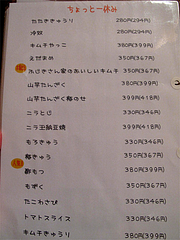 ちょっと一休み
たたききゅうり 280円(294円)
冷奴 280円(294円)
キムチやっこ 380円(399円)
えだまめ 350円(367円)
ホルさん家のおいしいキムチ 350円(367円)
山芋たんざく 380円(399円)
山芋たんざく梅のせ 399円(418円)
ニラとじ 330円(346円)
ニラ玉納豆焼 399円(418円)
もろきゅう 330円(346円)
梅きゅう 350円(367円)
酢もつ 380円(399円)
もずく 350円(367円)
たこわさび 330円(346円)
トマトスライス 330円(346円)
キムチきゅうり 380円(399円)